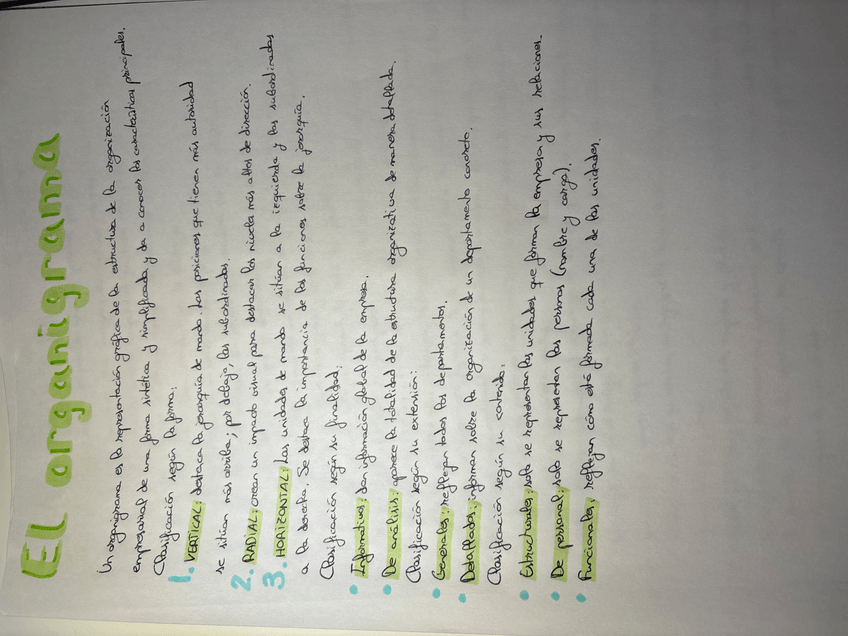 El organigrama
Un organigrama es la representación gráfica de la estructura de la organización
empresarial de una forma sintética y simplificada y da a conocer las características principales.
Clasificación según la forma:
1. VERTICAL: destaca la jerarquía de mando. Las posiciones que tienen más autoridad
se sitúan más arriba; por debajo, las subordinadas.
2. RADIAL: crean un impacto visual para destacar los niveles más altos de dirección.
3. HORIZONTAL: Las unidades de mando se sitúan a la izquierda y las subordinadas
a la derecha. Se destaca la importancia de las funciones sobre la jerarquía.
Clasificación según su finalidad:
• Informativos: dan información global de la empresa.
• De análisis: aparece la totalidad de la estructura organizativa de manera detallada.
Clasificación según su extensión:
• Generales: reflejan todos los departamentos.
• Detallados: informan sobre la organización de un departamento concreto.
Clasificación según su contenido:
• Estructurales: solo se representan las unidades que forman la empresa y sus relaciones.
• De personal: solo se representan las personas (nombre y cargo).
• Funcionales: reflejan cómo está formada cada una de las unidades.